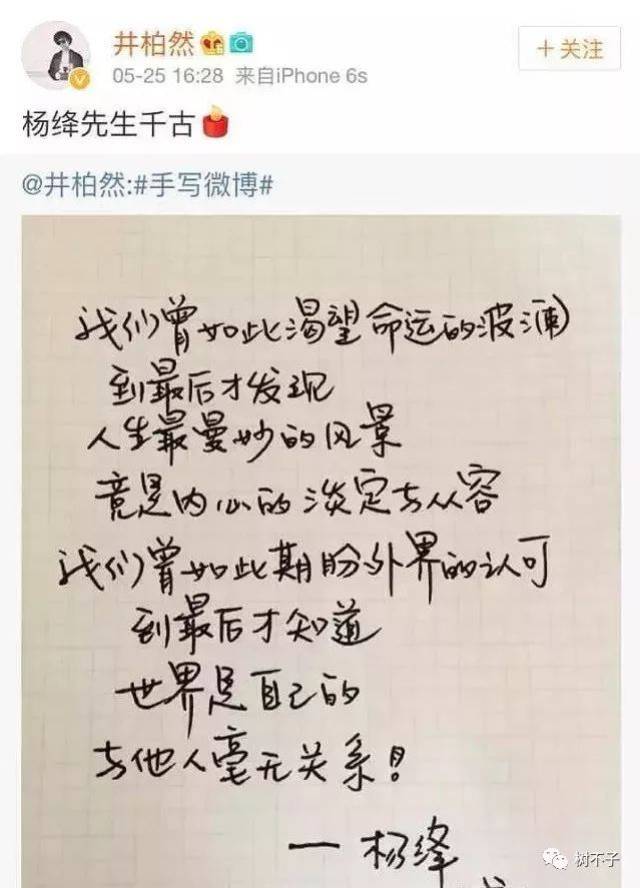 井柏然
+关注
05-25 16:28 来自iPhone 6s
杨绛先生千古
@井柏然:#手写微博#
我们曾如此渴望命运的波澜
到最后才发现
人生最曼妙的风景
竟是内心的淡定与从容
我们曾如此期盼外界的认可
到最后才知道
世界是自己的
与他人毫无关系！
— 杨绛
树不子